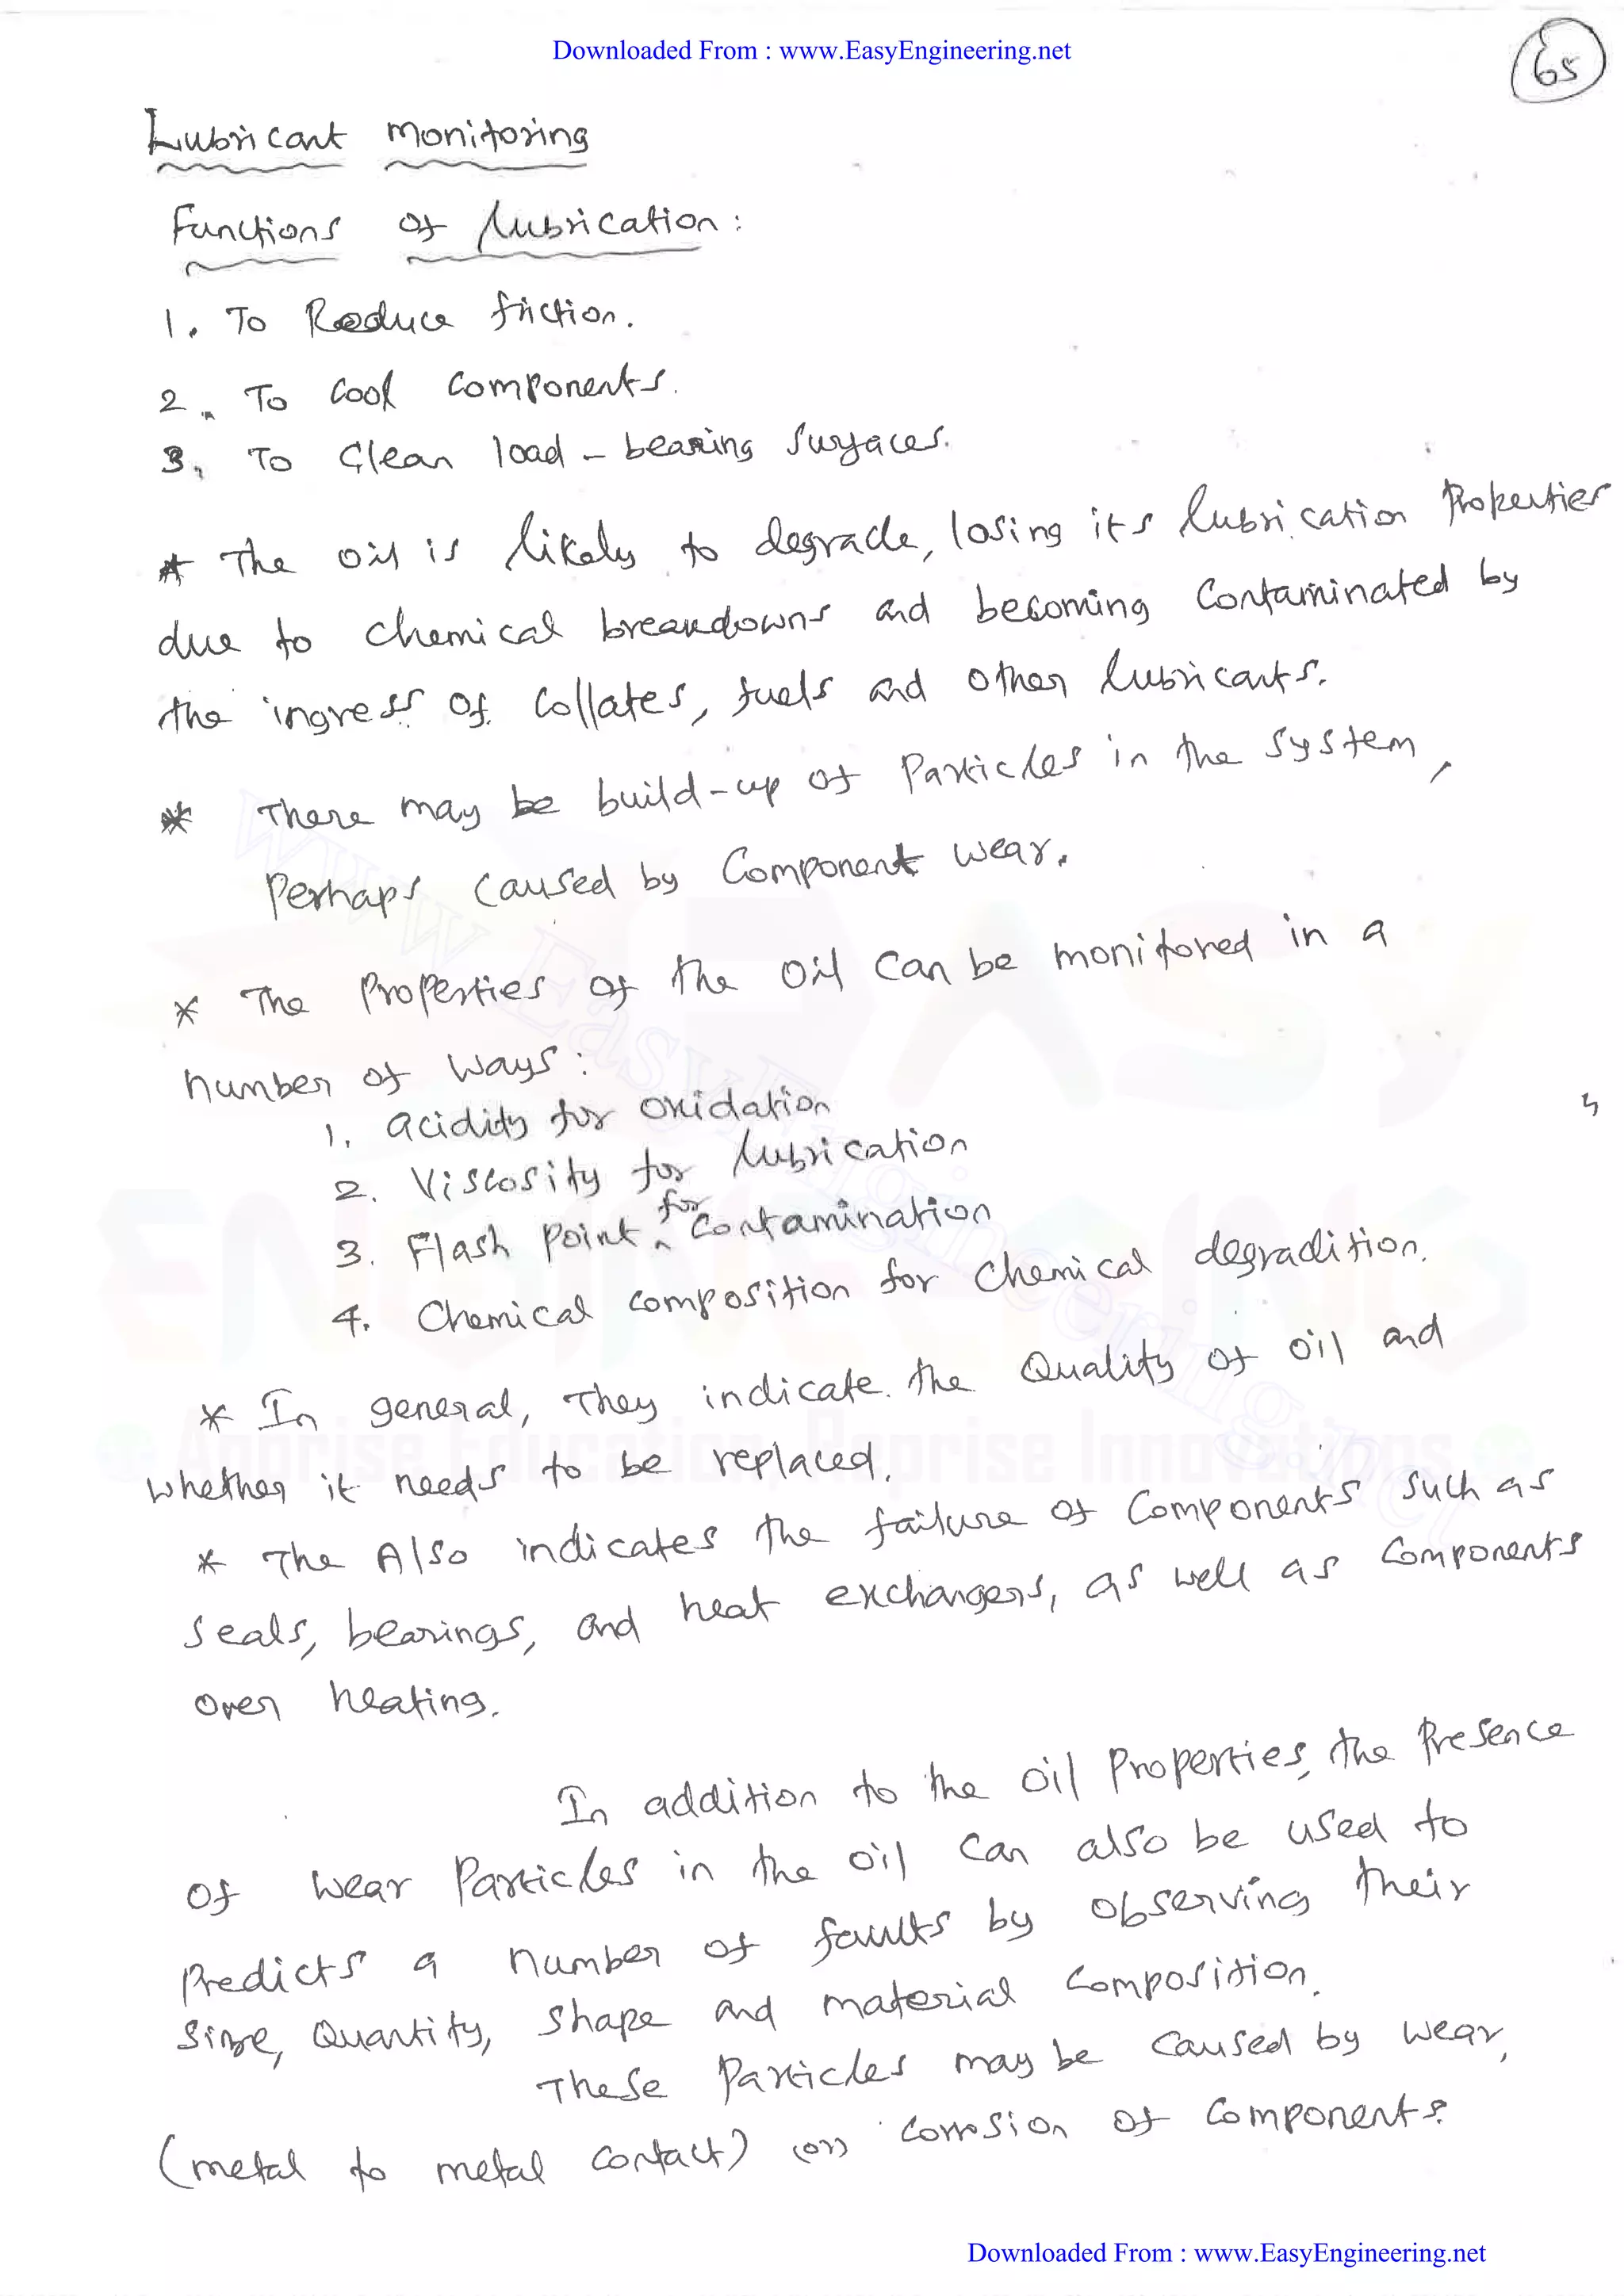 Downloaded From : www.EasyEngineering.net
65
Lubricant monitoring
Functions of lubrication :
1. To Reduce friction.
2. To Cool Components.
3. To Clean load - bearing Surfaces.
* The oil is likely to degrade, losing its lubrication Properties
due to chemical breakdowns and becoming Contaminated by
the ingress of Collates, fuels and other lubricants.
* There may be build-up of Particles in the system,
Perhaps Caused by Component wear.
* The Properties of the Oil Can be monitored in a
number of ways :
1. acidity for oxidation
2. Viscosity for lubrication
3. Flash Point for Contamination
4. Chemical composition for Chemical degradition.
* In general, They indicate the Quality of oil and
whether it needs to be replaced.
* The Also indicates the failure of Components such as
Seals, bearings, and heat exchangers, as well as Components
over heating.
In addition to the oil Properties, the Presence
of wear Particles in the oil Can also be used to
Predicts a number of faults by observing their
Size, Quantity, Shape and material Composition.
These Particles may be Caused by wear,
(metal to metal Contact) (or) Corrosion of Components.
Downloaded From : www.EasyEngineering.net
www.EasyEngineering.net
EASY
ENGINEERING
Apprise Education, Reprise Innovations